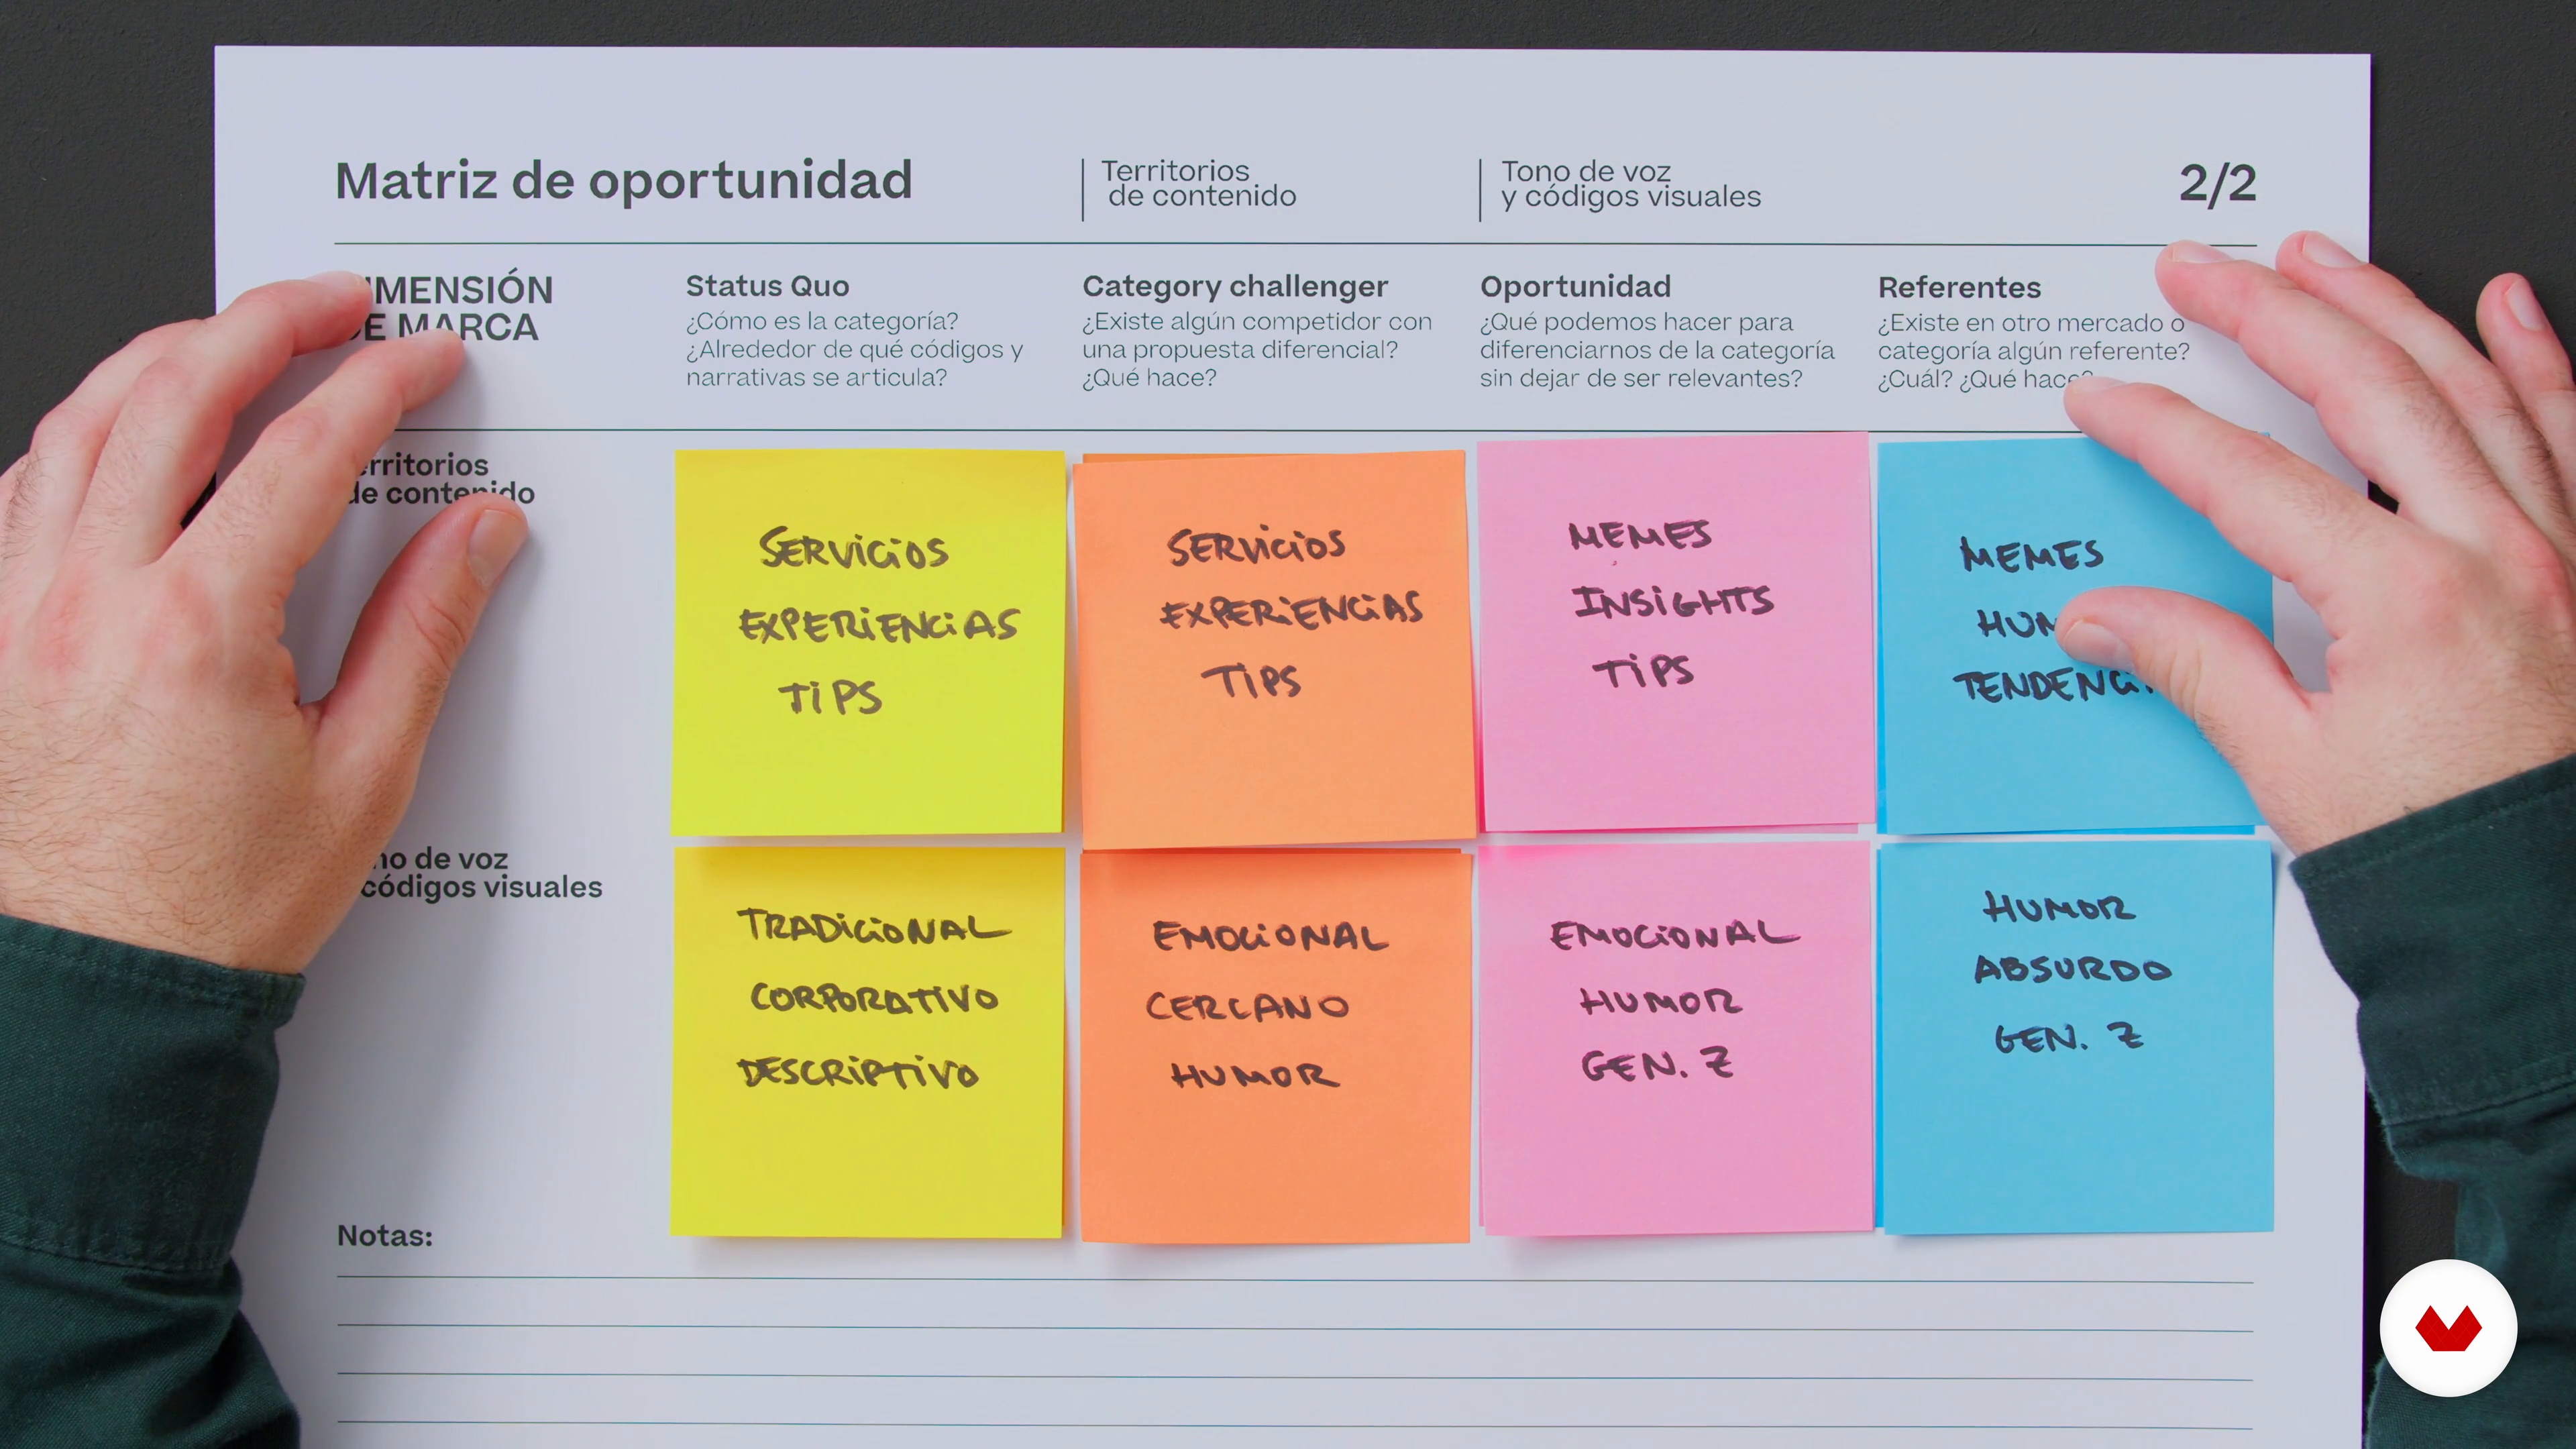 Matriz de oportunidad
Territorios
de contenido
Tono de voz
y códigos visuales
2/2
DIMENSIÓN
DE MARCA
Status Quo
¿Cómo es la categoría?
¿Alrededor de qué códigos y
narrativas se articula?
Category challenger
¿Existe algún competidor con
una propuesta diferencial?
¿Qué hace?
Oportunidad
¿Qué podemos hacer para
diferenciarnos de la categoría
sin dejar de ser relevantes?
Referentes
¿Existe en otro mercado o
categoría algún referente?
¿Cuál? ¿Qué hace?
Territorios
de contenido
SERVICIOS
EXPERIENCIAS
TIPS
SERVICIOS
EXPERIENCIAS
TIPS
MEMES
INSIGHTS
TIPS
MEMES
Tono de voz
códigos visuales
TRADICIONAL
CORPORATIVO
DESCRIPTIVO
EMOCIONAL
CERCANO
HUMOR
EMOCIONAL
HUMOR
GEN. Z
HUMOR
ABSURDO
GEN. Z
Notas: